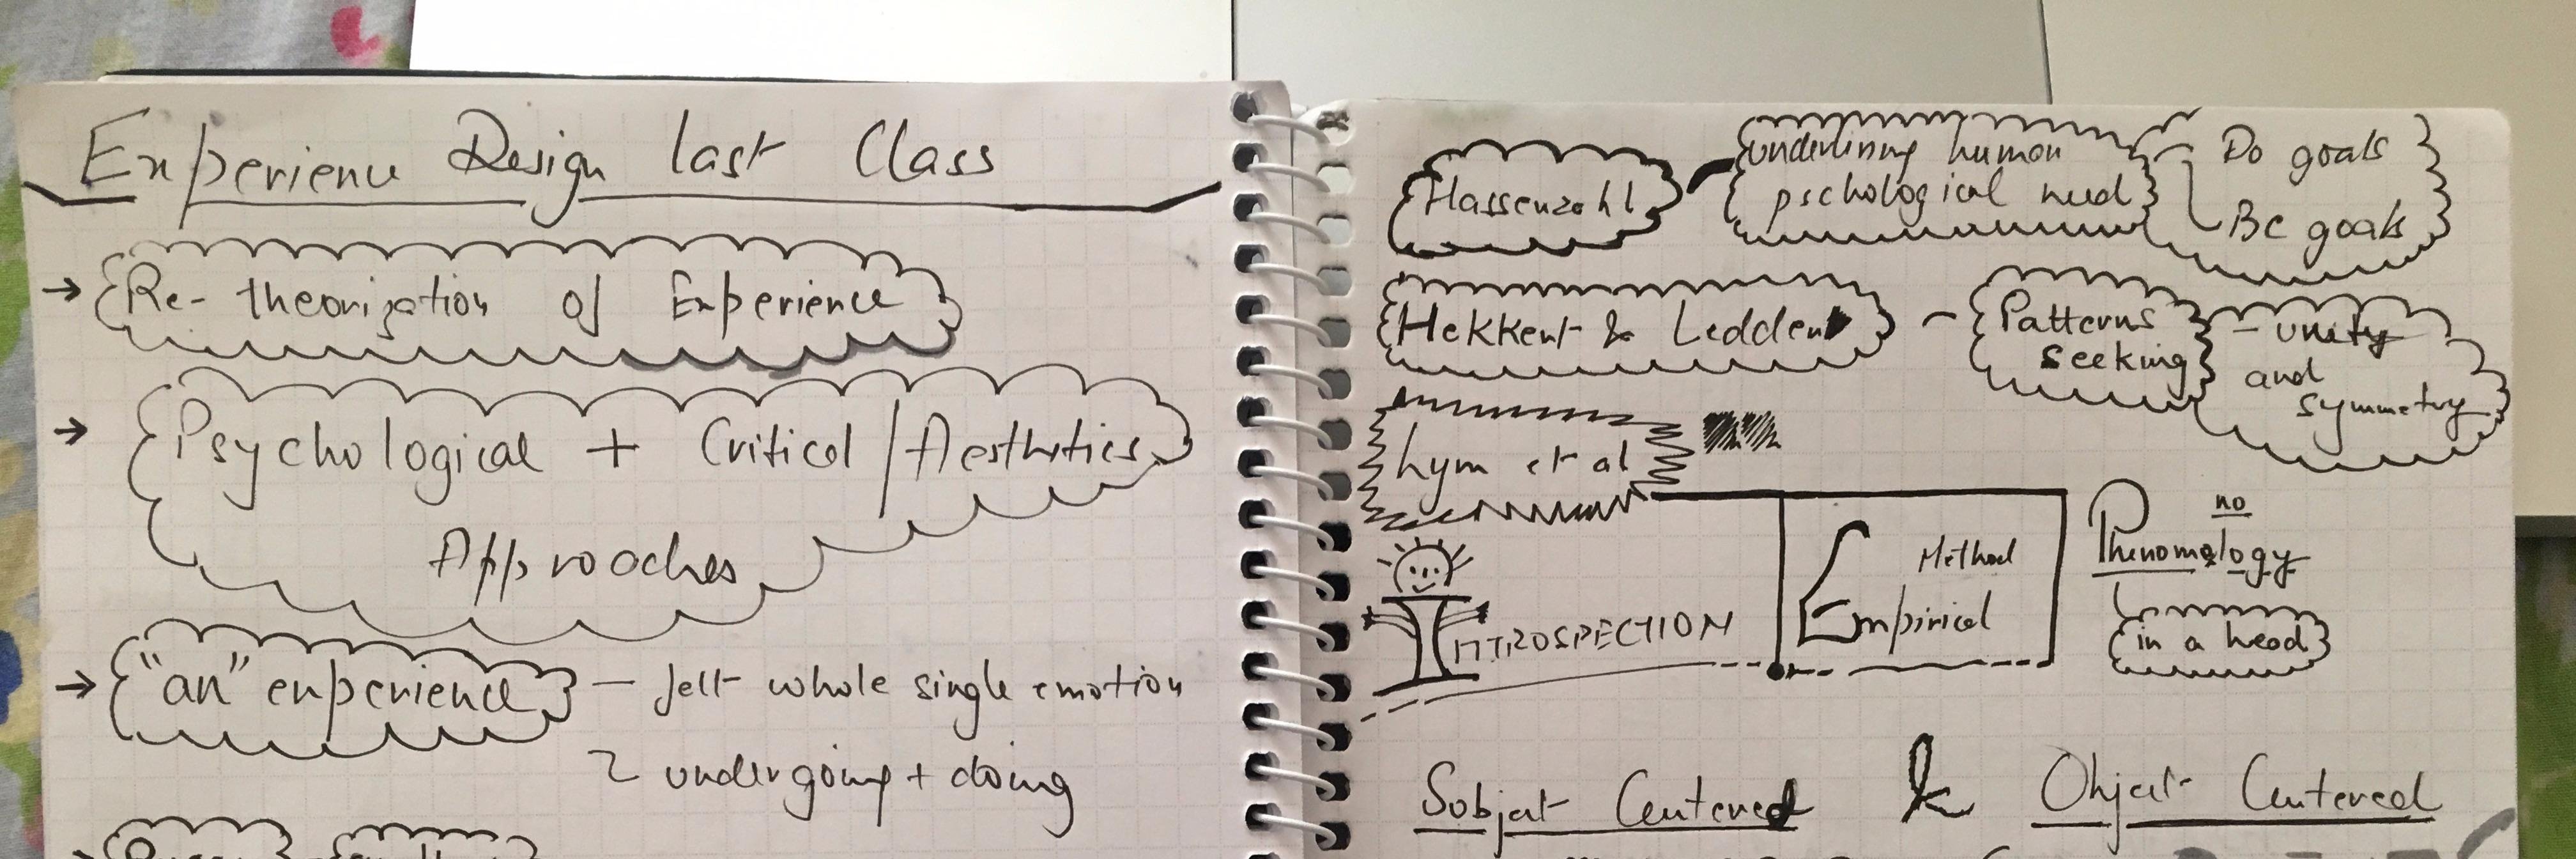 Experience Design last Class
→ Re-theorization of Experience
→ Psychological + Critical / Aesthetics
Approaches
→ "an" experience – felt whole single emotion
undergoing + doing
Hassenzahl
underlining human
pschological need
Do goals
Be goals
Hekkert & Ledder
Patterns
seeking
- unity
and
symmetry
hym et al
INTROSPECTION
Method
Empirical
no
Phenomology
in a head
Subject Centered & Object Centered